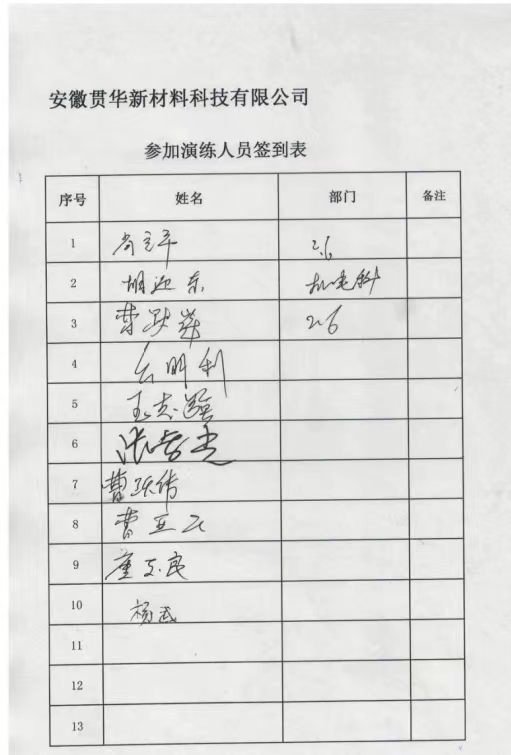 安徽贯华新材料科技有限公司
参加演练人员签到表
序号 姓名 部门 备注
1 2.6
2 胡迎东 机电科
3 曹 2.6
4 明利
5 王志强
6 张
7 曹跃伟
8 曹亚云
9 良
10 杨武
11
12
13